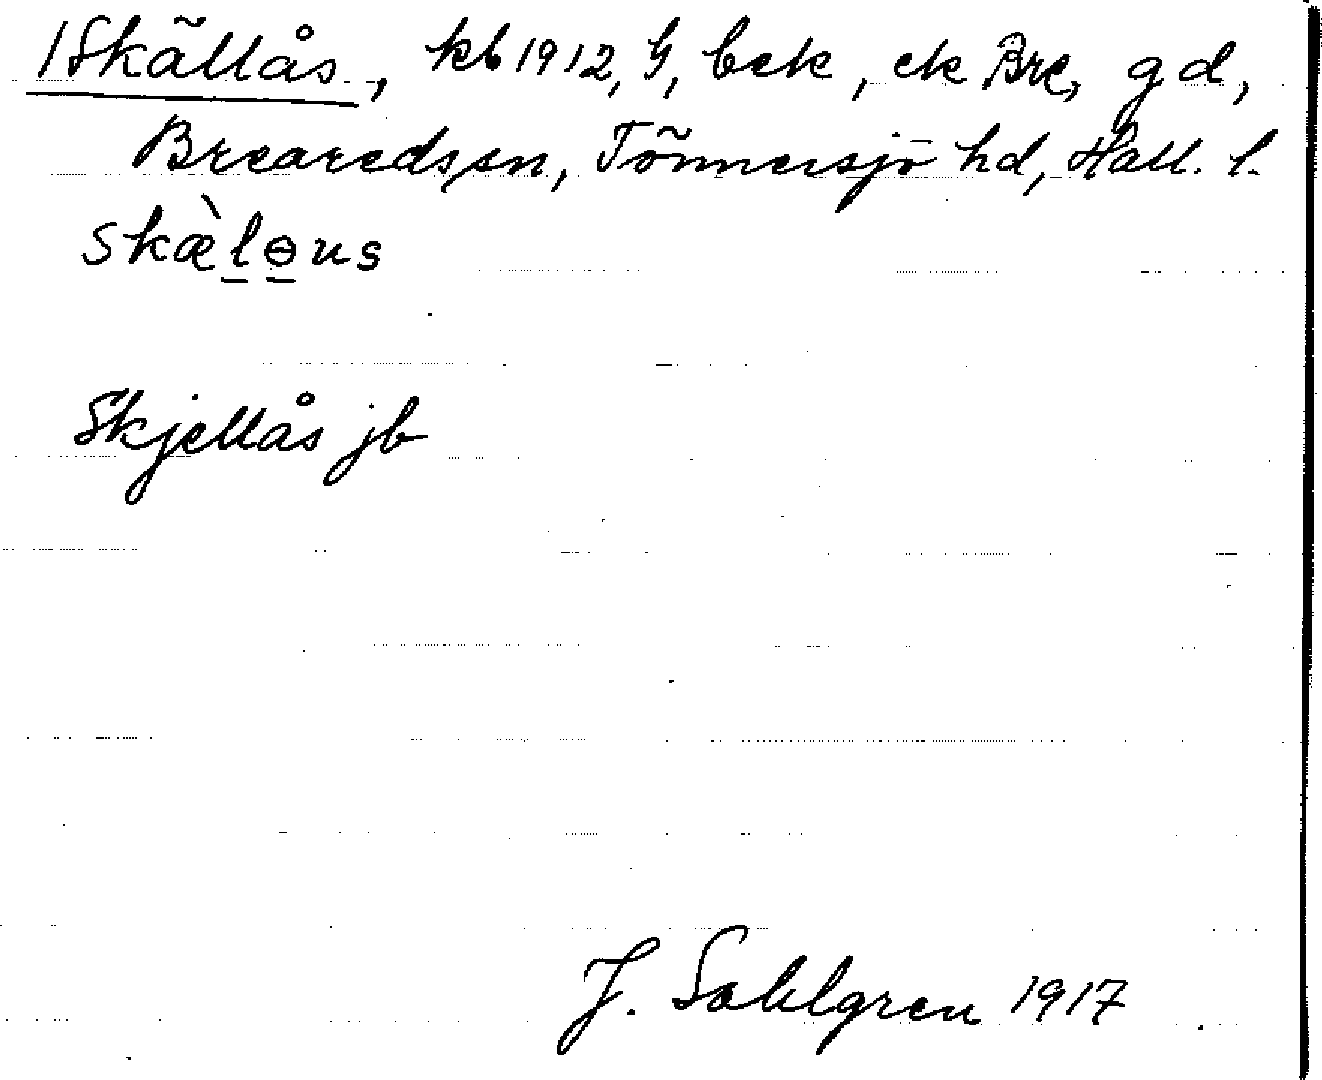 /Skällås, kb 1912, G, bek, ek Bre, gd,
Brearedssn, Tönnersjö hd, Hall. l.
skæ̀lɵus
Skjellås jb
J. Sahlgren 1917